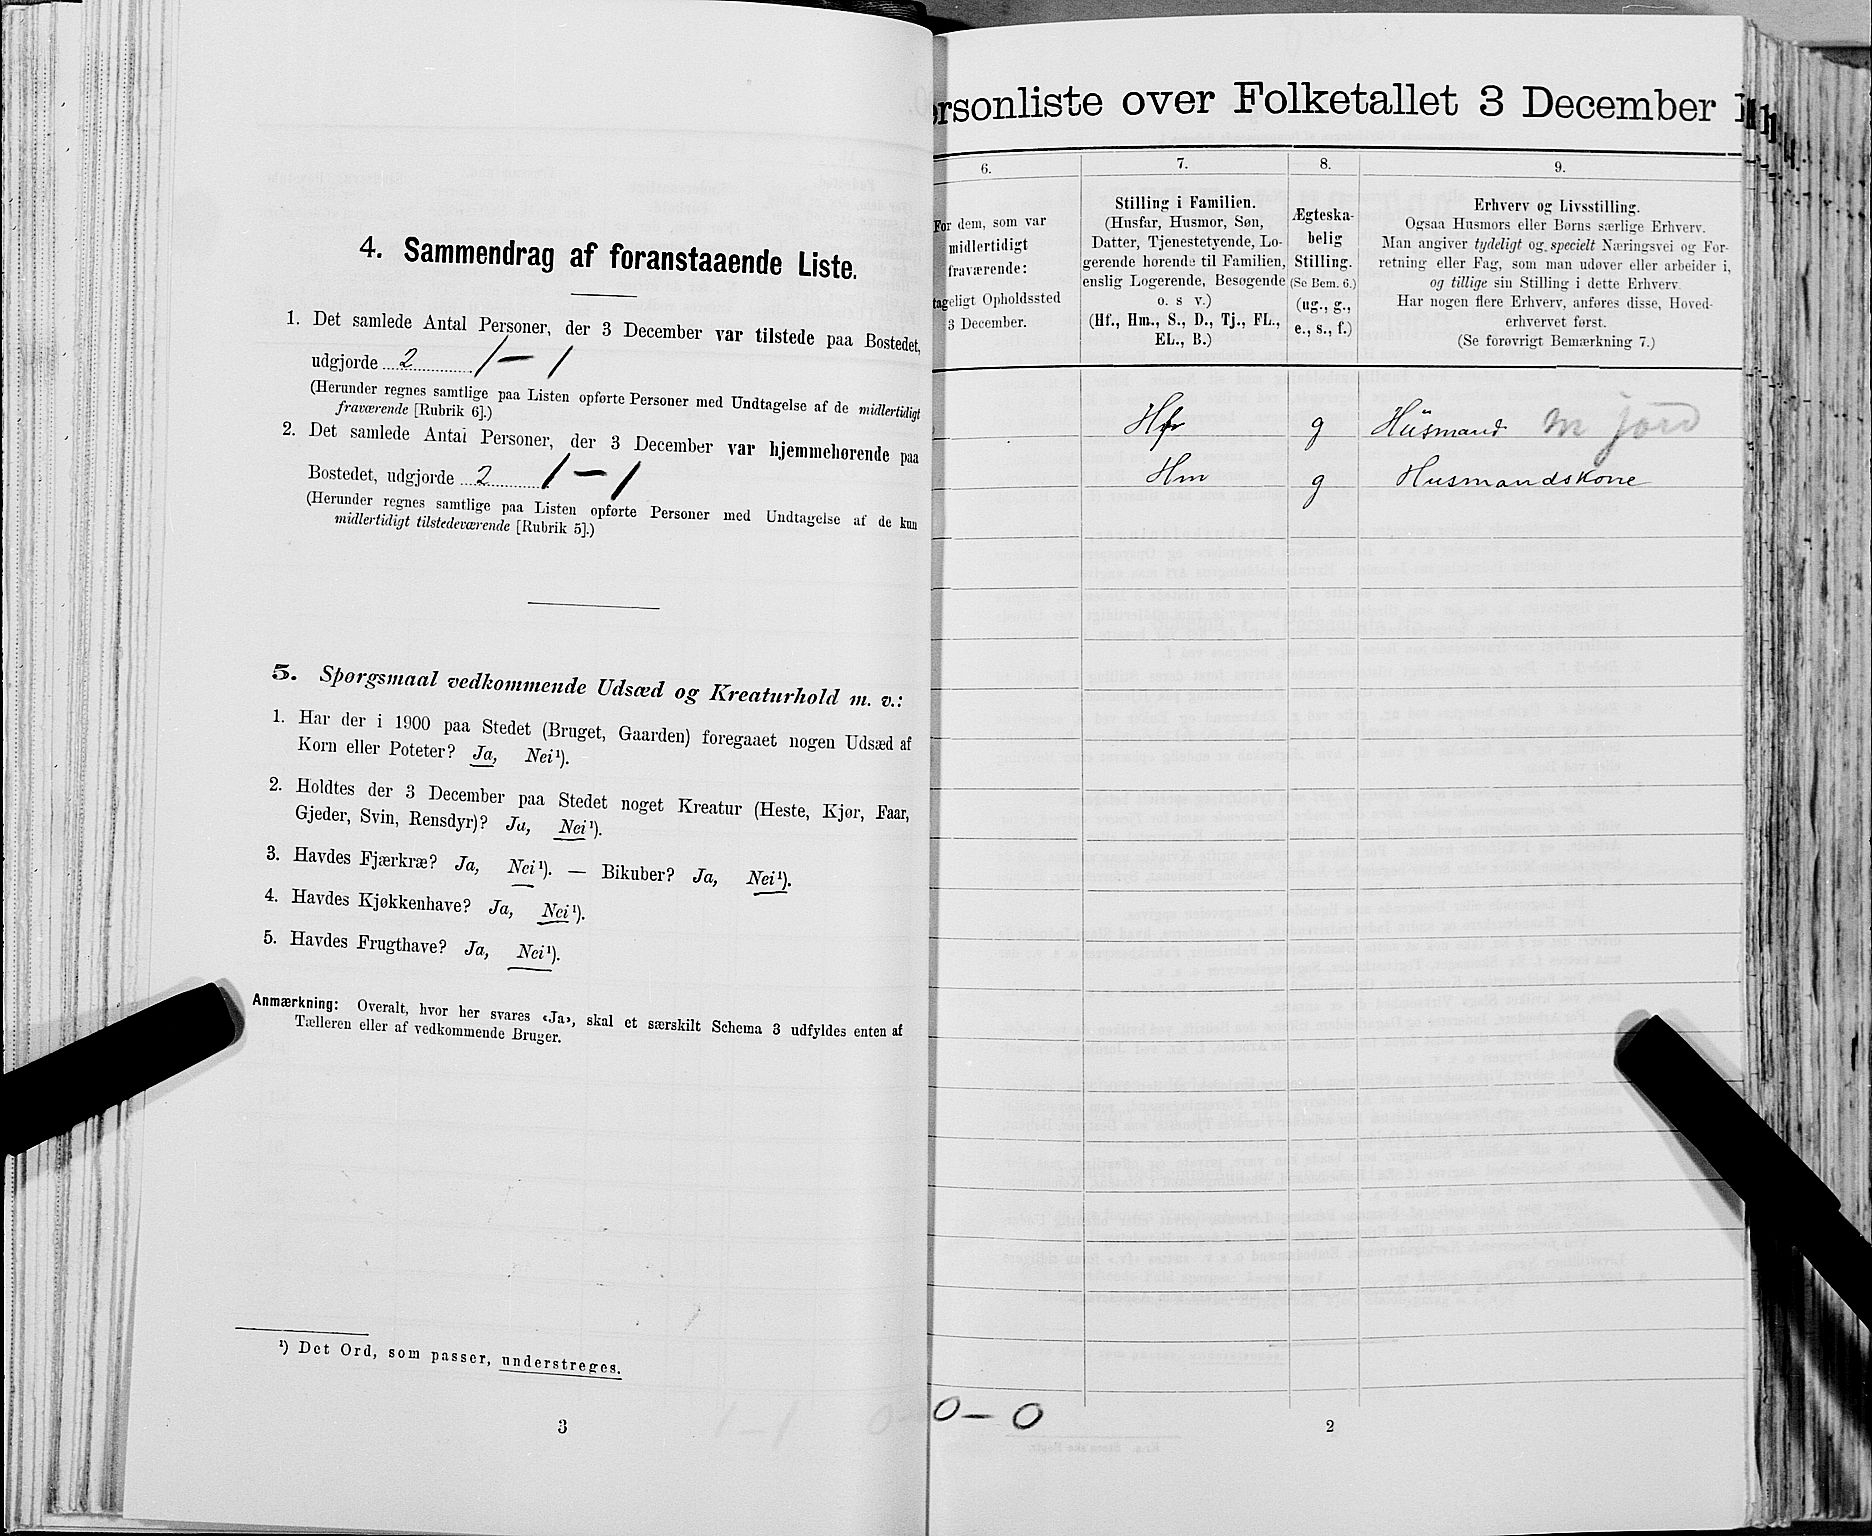 4. Sammendrag af foranstaaende Liste.
1. Det samlede Antal Personer, der 3 December var tilstede paa Bostedet,
udgjorde 2 1 — 1
(Herunder regnes samtlige paa Listen opførte Personer med Undtagelse af de midlertidigt
fraværende [Rubrik 6].)
2. Det samlede Antal Personer, der 3 December var hjemmehørende paa
Bostedet, udgjorde 2 1 — 1
(Herunder regnes samtlige paa Listen opførte Personer med Undtagelse af de kun
midlertidigt tilstedeværende [Rubrik 5].)
5. Spørgsmaal vedkommende Udsæd og Kreaturhold m. v.:
1. Har der i 1900 paa Stedet (Bruget, Gaarden) foregaaet nogen Udsæd af
Korn eller Poteter? Ja, Nei¹).
2. Holdtes der 3 December paa Stedet noget Kreatur (Heste, Kjør, Faar,
Gjeder, Svin, Rensdyr)? Ja, Nei¹).
3. Havdes Fjærkræ? Ja, Nei¹). — Bikuber? Ja, Nei¹).
4. Havdes Kjøkkenhave? Ja, Nei¹).
5. Havdes Frugthave? Ja, Nei¹).
Anmærkning: Overalt, hvor her svares «Ja», skal et særskilt Schema 3 udfyldes enten af
Tælleren eller af vedkommende Bruger.
¹) Det Ord, som passer, understreges.
3
ersonliste over Folketallet 3 December 1
6.
For dem, som var
midlertidigt
fraværende:
tageligt Opholdssted
3 December.
7.
Stilling i Familien.
(Husfar, Husmor, Søn,
Datter, Tjenestetyende, Lo-
gerende hørende til Familien,
enslig Logerende, Besøgende
o. s v.)
(Hf., Hm., S., D., Tj., FL.,
EL., B.)
8.
Ægteska-
belig
Stilling.
(Se Bem. 6.)
(ug., g.,
e., s., f.)
9.
Erhverv og Livsstilling.
Ogsaa Husmors eller Børns særlige Erhverv.
Man angiver tydeligt og specielt Næringsvei og For-
retning eller Fag, som man udøver eller arbeider i,
og tillige sin Stilling i dette Erhverv.
Har nogen flere Erhverv, anføres disse, Hoved-
erhvervet først.
(Se forøvrigt Bemærkning 7.)
Hf g Husmand m jord
Hm g Husmandskone
0 — 0
2